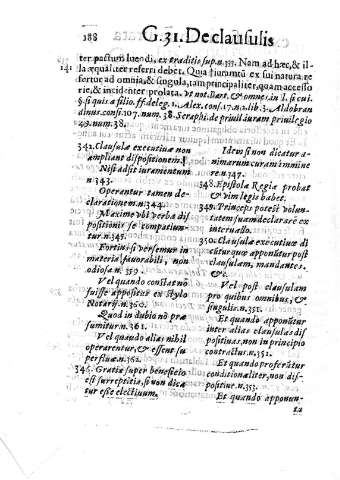 188 G. 31. De clausulis
ter pactum luendi, ex traditio sup. n. 333. Nam ad hæc, & il-
141 la æqualiter referri debet. Quia iuramentū ex sui natura re
fertur ad omnia, & singula, tam principaliter, quam accesso
rie, & incidenter prolata. Vt not. Bart. & omnes in l. si cui.
§. si quis a filio. ff. de leg. 1. Alex. cons. 17. n. 2. lib. 3. Aldobran
dinus cons. 107. num. 38. Seraphi. de privil. iuram. privilegio
49. num. 38.
342. Clausulæ executiuæ non
ampliant dispositionem.
Nisi adsit iuramentum
n. 343.
Operantur tamen de-
clarationem n. 344.
Maxime vbi verba dis
positionis se compatiun-
tur. n. 345.
Fortius si versemur in
materia fauorabili, non
odiosa. n. 359.
Vel quando constat nō
fuisse appositas ex stylo
Notarij. n. 360.
Quod in dubio nō præ
sumitur. n. 361.
Vel quando alias nihil
operarentur, & essent su
perfluæ. n. 362.
346. Gratia super beneficio
est surreptitia, si non dica
tur esse electiuum,
Idem si non dicatur a-
nimarum curam imminе
re n. 347.
348. Epistola Regia probat
& vim legis habet.
349. Princeps potest volun-
tatem suam declarare ex
interuallo.
350. Clausulæ executiuæ di
cuntur quæ apponūtur post
clausulam, mandantes,
&c.
Vel post clausulam
pro quibus omnibus, &
singulis. n. 351.
Et quando apponūtur
inter alias clausulas dis
positiuas, non in principio
contractus. n. 352.
Et quando proferūtur
conditionaliter, non dis-
positiue. n. 353.
Et quando apponun-